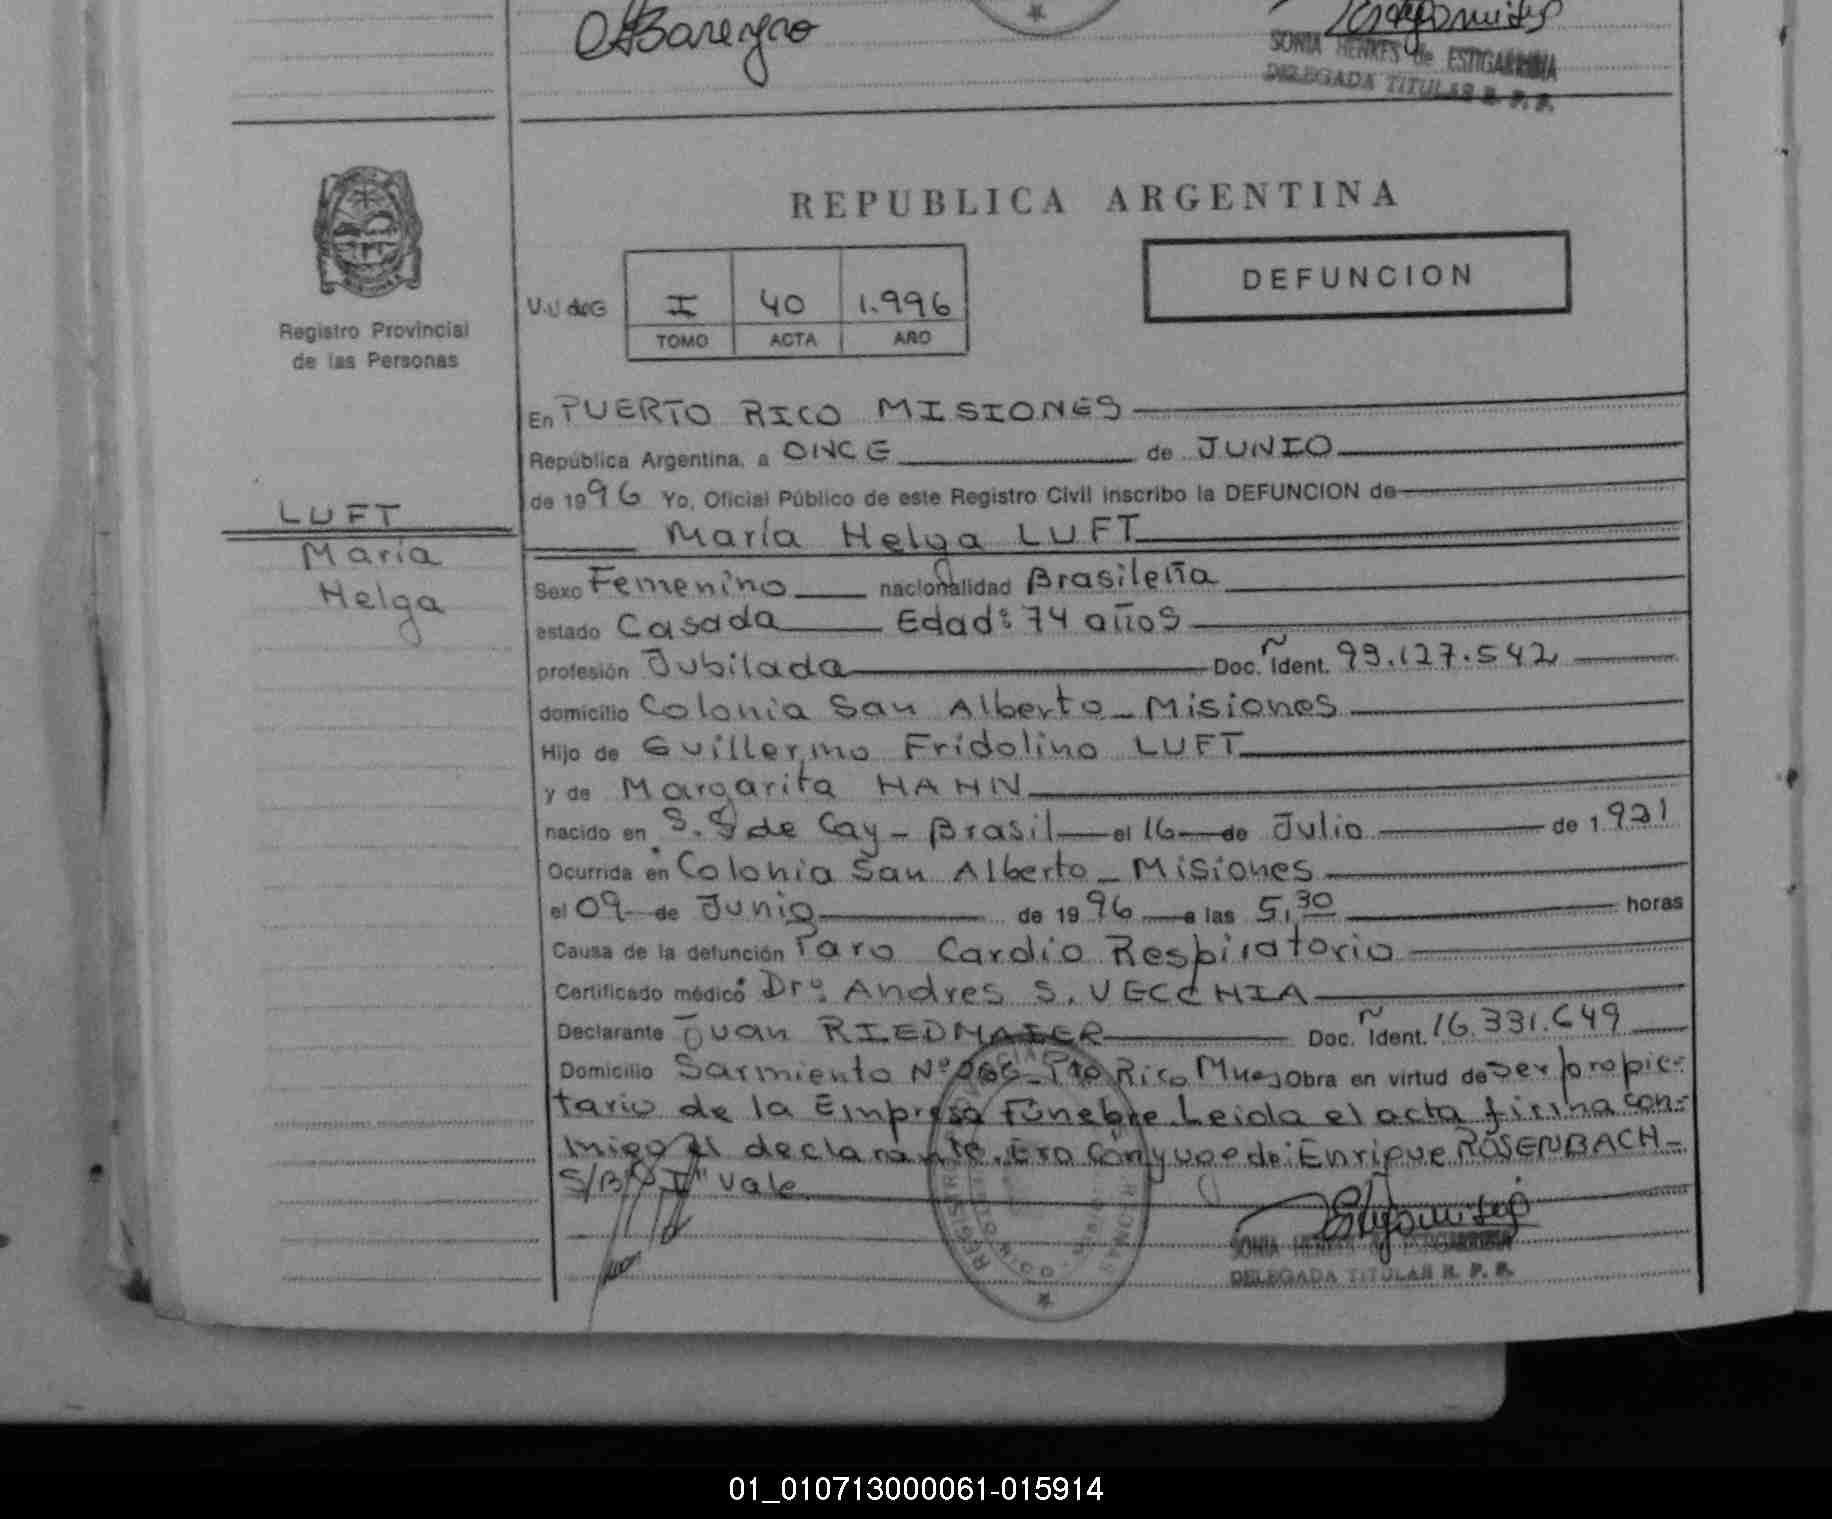 SONIA HENKES de ESTIGARRIBIA
DELEGADA TITULAR R. P. P.
REPUBLICA ARGENTINA
DEFUNCION
I 40 1.996
TOMO ACTA AÑO
Registro Provincial
de las Personas
En PUERTO RICO MISIONES
República Argentina, a ONCE de JUNIO
de 1996 Yo, Oficial Público de este Registro Civil inscribo la DEFUNCION de
LUFT
María
Helga
María Helga LUFT
Sexo Femenino nacionalidad Brasileña
estado Casada Edad: 74 años
profesión Jubilada Doc. Ident. 93.127.542
domicilio Colonia San Alberto - Misiones
Hijo de Guillermo Fridolino LUFT
y de Margarita HAHN
nacido en S.S de Cay - Brasil el 16 de Julio de 1.921
Ocurrida en Colonia San Alberto - Misiones
el 09 de Junio de 1996 a las 5,30 horas
Causa de la defunción Paro Cardio Respiratorio
Certificado médico Dr: Andres S. VECCHIA
Declarante Juan RIEDMAIER Doc. Ident. 16.331.649
Domicilio Sarmiento Nº Pto Rico Mnes Obra en virtud de ser propie-
tario de la Empresa Fúnebre. Leida el acta firma con-
migo el declarante. Era Cónyuge de: Enrique ROSENBACH-
S/B "I" Vale
SONIA HENKES de ESTIGARRIBIA
DELEGADA TITULAR R. P. P.
01_010713000061-015914